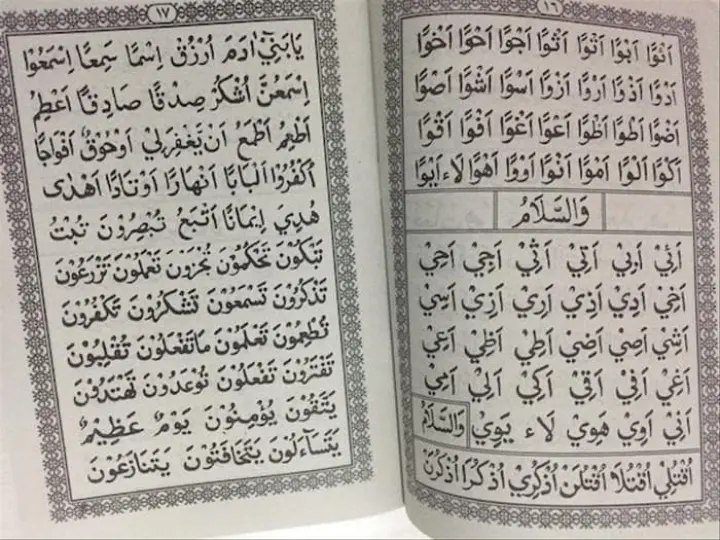 ١٦
اَئوًّا اَبوًّا اَتوًّا اَثوًّا اَجوًّا اَحوًّا اَخوًّا
اَدوًّا اَذوًّا اَروًّا اَزوًّا اَسوًّا اَشوًّا اَصوًّا
اَضوًّا اَطوًّا اَظوًّا اَعوًّا اَغوًّا اَفوًّا اَقوًّا
اَكوًّا اَلوًّا اَموًّا اَنوًّا اَووًّا اَهوًّا لَاء اَيوًّا
وَالسَّلَامُ
اَئِيْ اَبِيْ اَتِيْ اَثِيْ اَجِيْ اَحِيْ
اَخِيْ اَدِيْ اَذِيْ اَرِيْ اَزِيْ اَسِيْ
اَشِيْ اَصِيْ اَضِيْ اَطِيْ اَظِيْ اَعِيْ
اَغِيْ اَفِيْ اَقِيْ اَكِيْ اَلِيْ اَمِيْ
اَنِيْ اَوِيْ هَوِيْ لَاء يَوِيْ وَالسَّلَامُ
اُقْتُلِيْ اُقْتُلَا اُقْتُلَنْ اُذْكُرِيْ اُذْكُرَا اُذْكُرَنْ
١٧
يَابَنِيْٓ اٰدَمَ اُرْزُقْ اِسْمًا سَمِعًا اِسْمَعُوْا
اِسْمَعُنَّ اُشْكُرْ صِدْقًا صَادِقًا اَعْطِمْ
اَطْعِمْ اَطْمَعُ اَنْ يَّغْفِرَلِيْ اَوْحُوْقٌ اَفْوَاجًا
اُكْفُرُوْا اَلْبَابًا اَنْهَارًا اَوْتَادًا اَهْدٰى
هُدِيَ اِيْمَانًا اَتْبَعُ تُبْصِرُوْنَ تُبْتُ
تَبْكُوْنَ تَحْكُمُوْنَ تُجْزَوْنَ تَعْمَلُوْنَ تَزْرَعُوْنَ
تَذْكُرُوْنَ تَسْمَعُوْنَ تَشْكُرُوْنَ تَكْفُرُوْنَ
تُطْعِمُوْنَ تَعْلَمُوْنَ مَاتَفْعَلُوْنَ تُقْلَبُوْنَ
تَفْتَرُوْنَ تَفْعَلُوْنَ تُوْعَدُوْنَ تَهْتَدُوْنَ
يَتَّقُوْنَ يُؤْمِنُوْنَ يَوْمٌ عَظِيْمٌ
يَتَسَآءَلُوْنَ يَتَخَافَتُوْنَ يَتَنَازَعُوْنَ